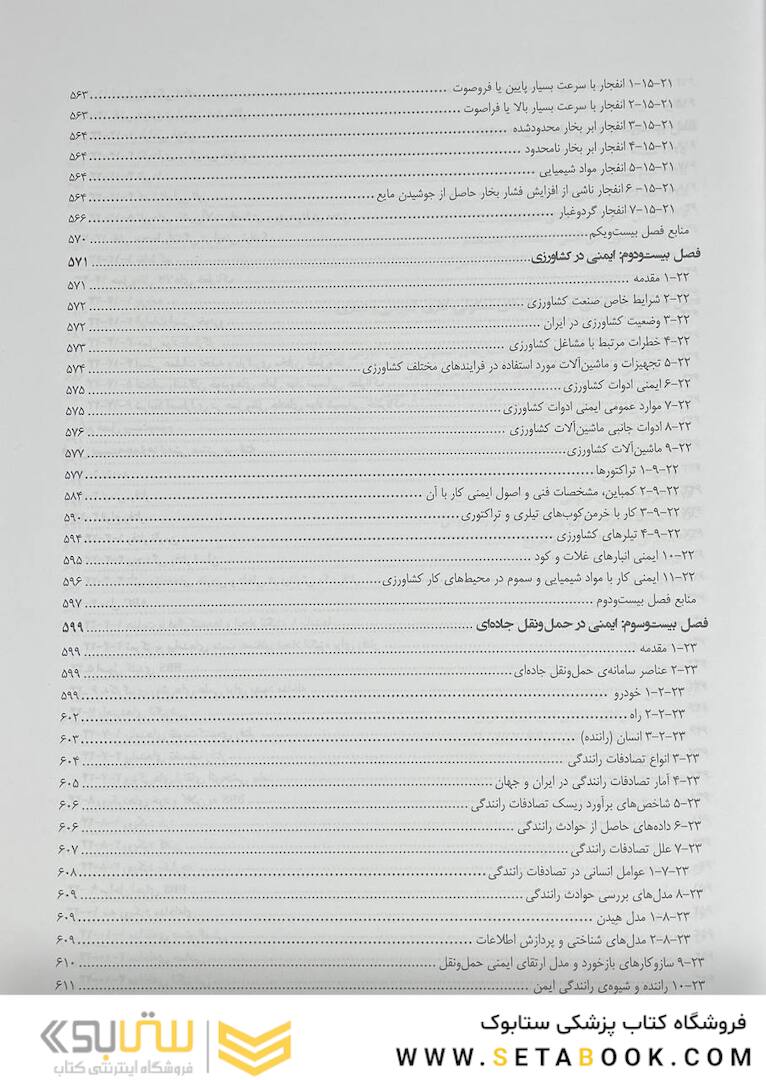 ۲۱-۱۵-۱ انفجار با سرعت بسیار پایین یا فروصوت ........ ۵۶۳
۲۱-۱۵-۲ انفجار با سرعت بسیار بالا یا فراصوت ........ ۵۶۳
۲۱-۱۵-۳ انفجار ابر بخار محدودشده ........ ۵۶۴
۲۱-۱۵-۴ انفجار ابر بخار نامحدود ........ ۵۶۴
۲۱-۱۵-۵ انفجار مواد شیمیایی ........ ۵۶۴
۲۱-۱۵-۶ انفجار ناشی از افزایش فشار بخار حاصل از جوشیدن مایع ........ ۵۶۴
۲۱-۱۵-۷ انفجار گردوغبار ........ ۵۶۶
منابع فصل بیست‌ویکم ........ ۵۷۰
فصل بیست‌ودوم: ایمنی در کشاورزی ........ ۵۷۱
۲۲-۱ مقدمه ........ ۵۷۱
۲۲-۲ شرایط خاص صنعت کشاورزی ........ ۵۷۲
۲۲-۳ وضعیت کشاورزی در ایران ........ ۵۷۲
۲۲-۴ خطرات مرتبط با مشاغل کشاورزی ........ ۵۷۳
۲۲-۵ تجهیزات و ماشین‌آلات مورد استفاده در فرایندهای مختلف کشاورزی ........ ۵۷۴
۲۲-۶ ایمنی ادوات کشاورزی ........ ۵۷۵
۲۲-۷ موارد عمومی ایمنی ادوات کشاورزی ........ ۵۷۵
۲۲-۸ ادوات جانبی ماشین‌آلات کشاورزی ........ ۵۷۶
۲۲-۹ ماشین‌آلات کشاورزی ........ ۵۷۷
۲۲-۹-۱ تراکتورها ........ ۵۷۷
۲۲-۹-۲ کمباین، مشخصات فنی و اصول ایمنی کار با آن ........ ۵۸۴
۲۲-۹-۳ کار با خرمن‌کوب‌های تیلری و تراکتوری ........ ۵۹۰
۲۲-۹-۴ تیلرهای کشاورزی ........ ۵۹۴
۲۲-۱۰ ایمنی انبارهای غلات و کود ........ ۵۹۵
۲۲-۱۱ ایمنی کار با مواد شیمیایی و سموم در محیط‌های کار کشاورزی ........ ۵۹۶
منابع فصل بیست‌ودوم ........ ۵۹۷
فصل بیست‌وسوم: ایمنی در حمل‌ونقل جاده‌ای ........ ۵۹۹
۲۳-۱ مقدمه ........ ۵۹۹
۲۳-۲ عناصر سامانه‌ی حمل‌ونقل جاده‌ای ........ ۵۹۹
۲۳-۲-۱ خودرو ........ ۵۹۹
۲۳-۲-۲ راه ........ ۶۰۲
۲۳-۲-۳ انسان (راننده) ........ ۶۰۳
۲۳-۳ انواع تصادفات رانندگی ........ ۶۰۴
۲۳-۴ آمار تصادفات رانندگی در ایران و جهان ........ ۶۰۵
۲۳-۵ شاخص‌های برآورد ریسک تصادفات رانندگی ........ ۶۰۶
۲۳-۶ داده‌های حاصل از حوادث رانندگی ........ ۶۰۶
۲۳-۷ علل تصادفات رانندگی ........ ۶۰۷
۲۳-۷-۱ عوامل انسانی در تصادفات رانندگی ........ ۶۰۸
۲۳-۸ مدل‌های بررسی حوادث رانندگی ........ ۶۰۹
۲۳-۸-۱ مدل هیدن ........ ۶۰۹
۲۳-۸-۲ مدل‌های شناختی و پردازش اطلاعات ........ ۶۰۹
۲۳-۹ سازوکارهای بازخورد و مدل ارتقای ایمنی حمل‌ونقل ........ ۶۱۰
۲۳-۱۰ راننده و شیوه‌ی رانندگی ایمن ........ ۶۱۱
فروشگاه کتاب پزشکی ستابوک
WWW.SETABOOK.COM
ستابوک
فروشگاه اینترنتی کتاب